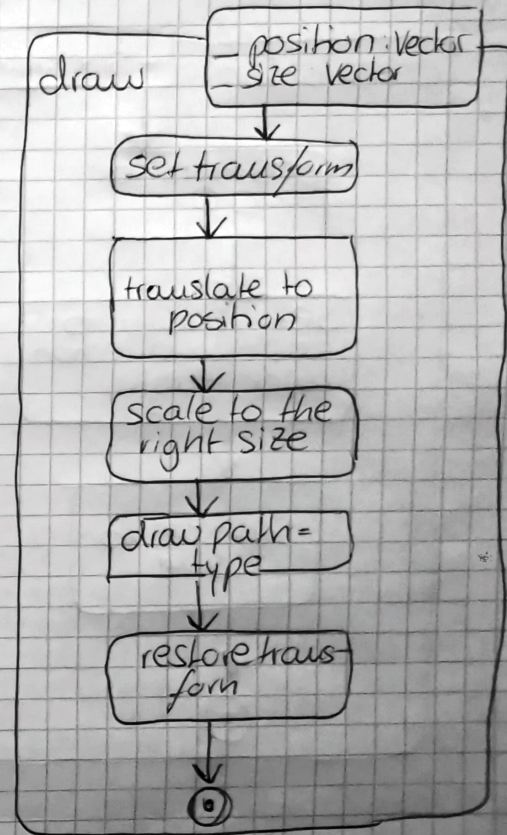 _ position : vector
draw
_ size vector
set transform
translate to
position
scale to the
right size
draw path=
type
restore trans-
form